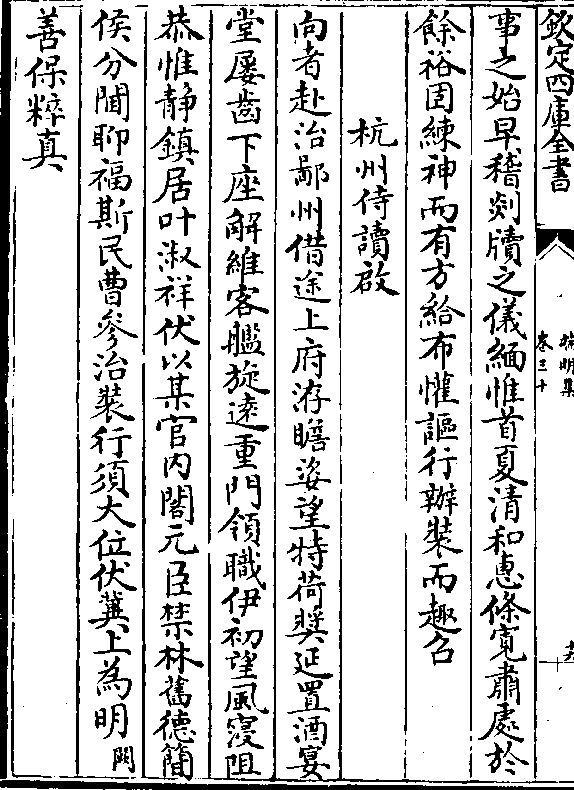 欽定四庫全書
端明集
卷三十
事之始早稽剡牘之儀緬惟首夏清和惠條寛肅處於
餘裕固練神而有方給布懽謳行辦裝而趣召
杭州侍讀啟
向者赴治鄙州借途上府洊瞻姿望特荷奬延置酒宴
堂屢齒下座解維客艦旋逺重門領職伊初望風寖阻
恭惟静鎮居叶淑祥伏以某官内閣元臣禁林舊德簡
侯分閫聊福斯民曹參治裝行須大位伏冀上為明闕
善保粹真